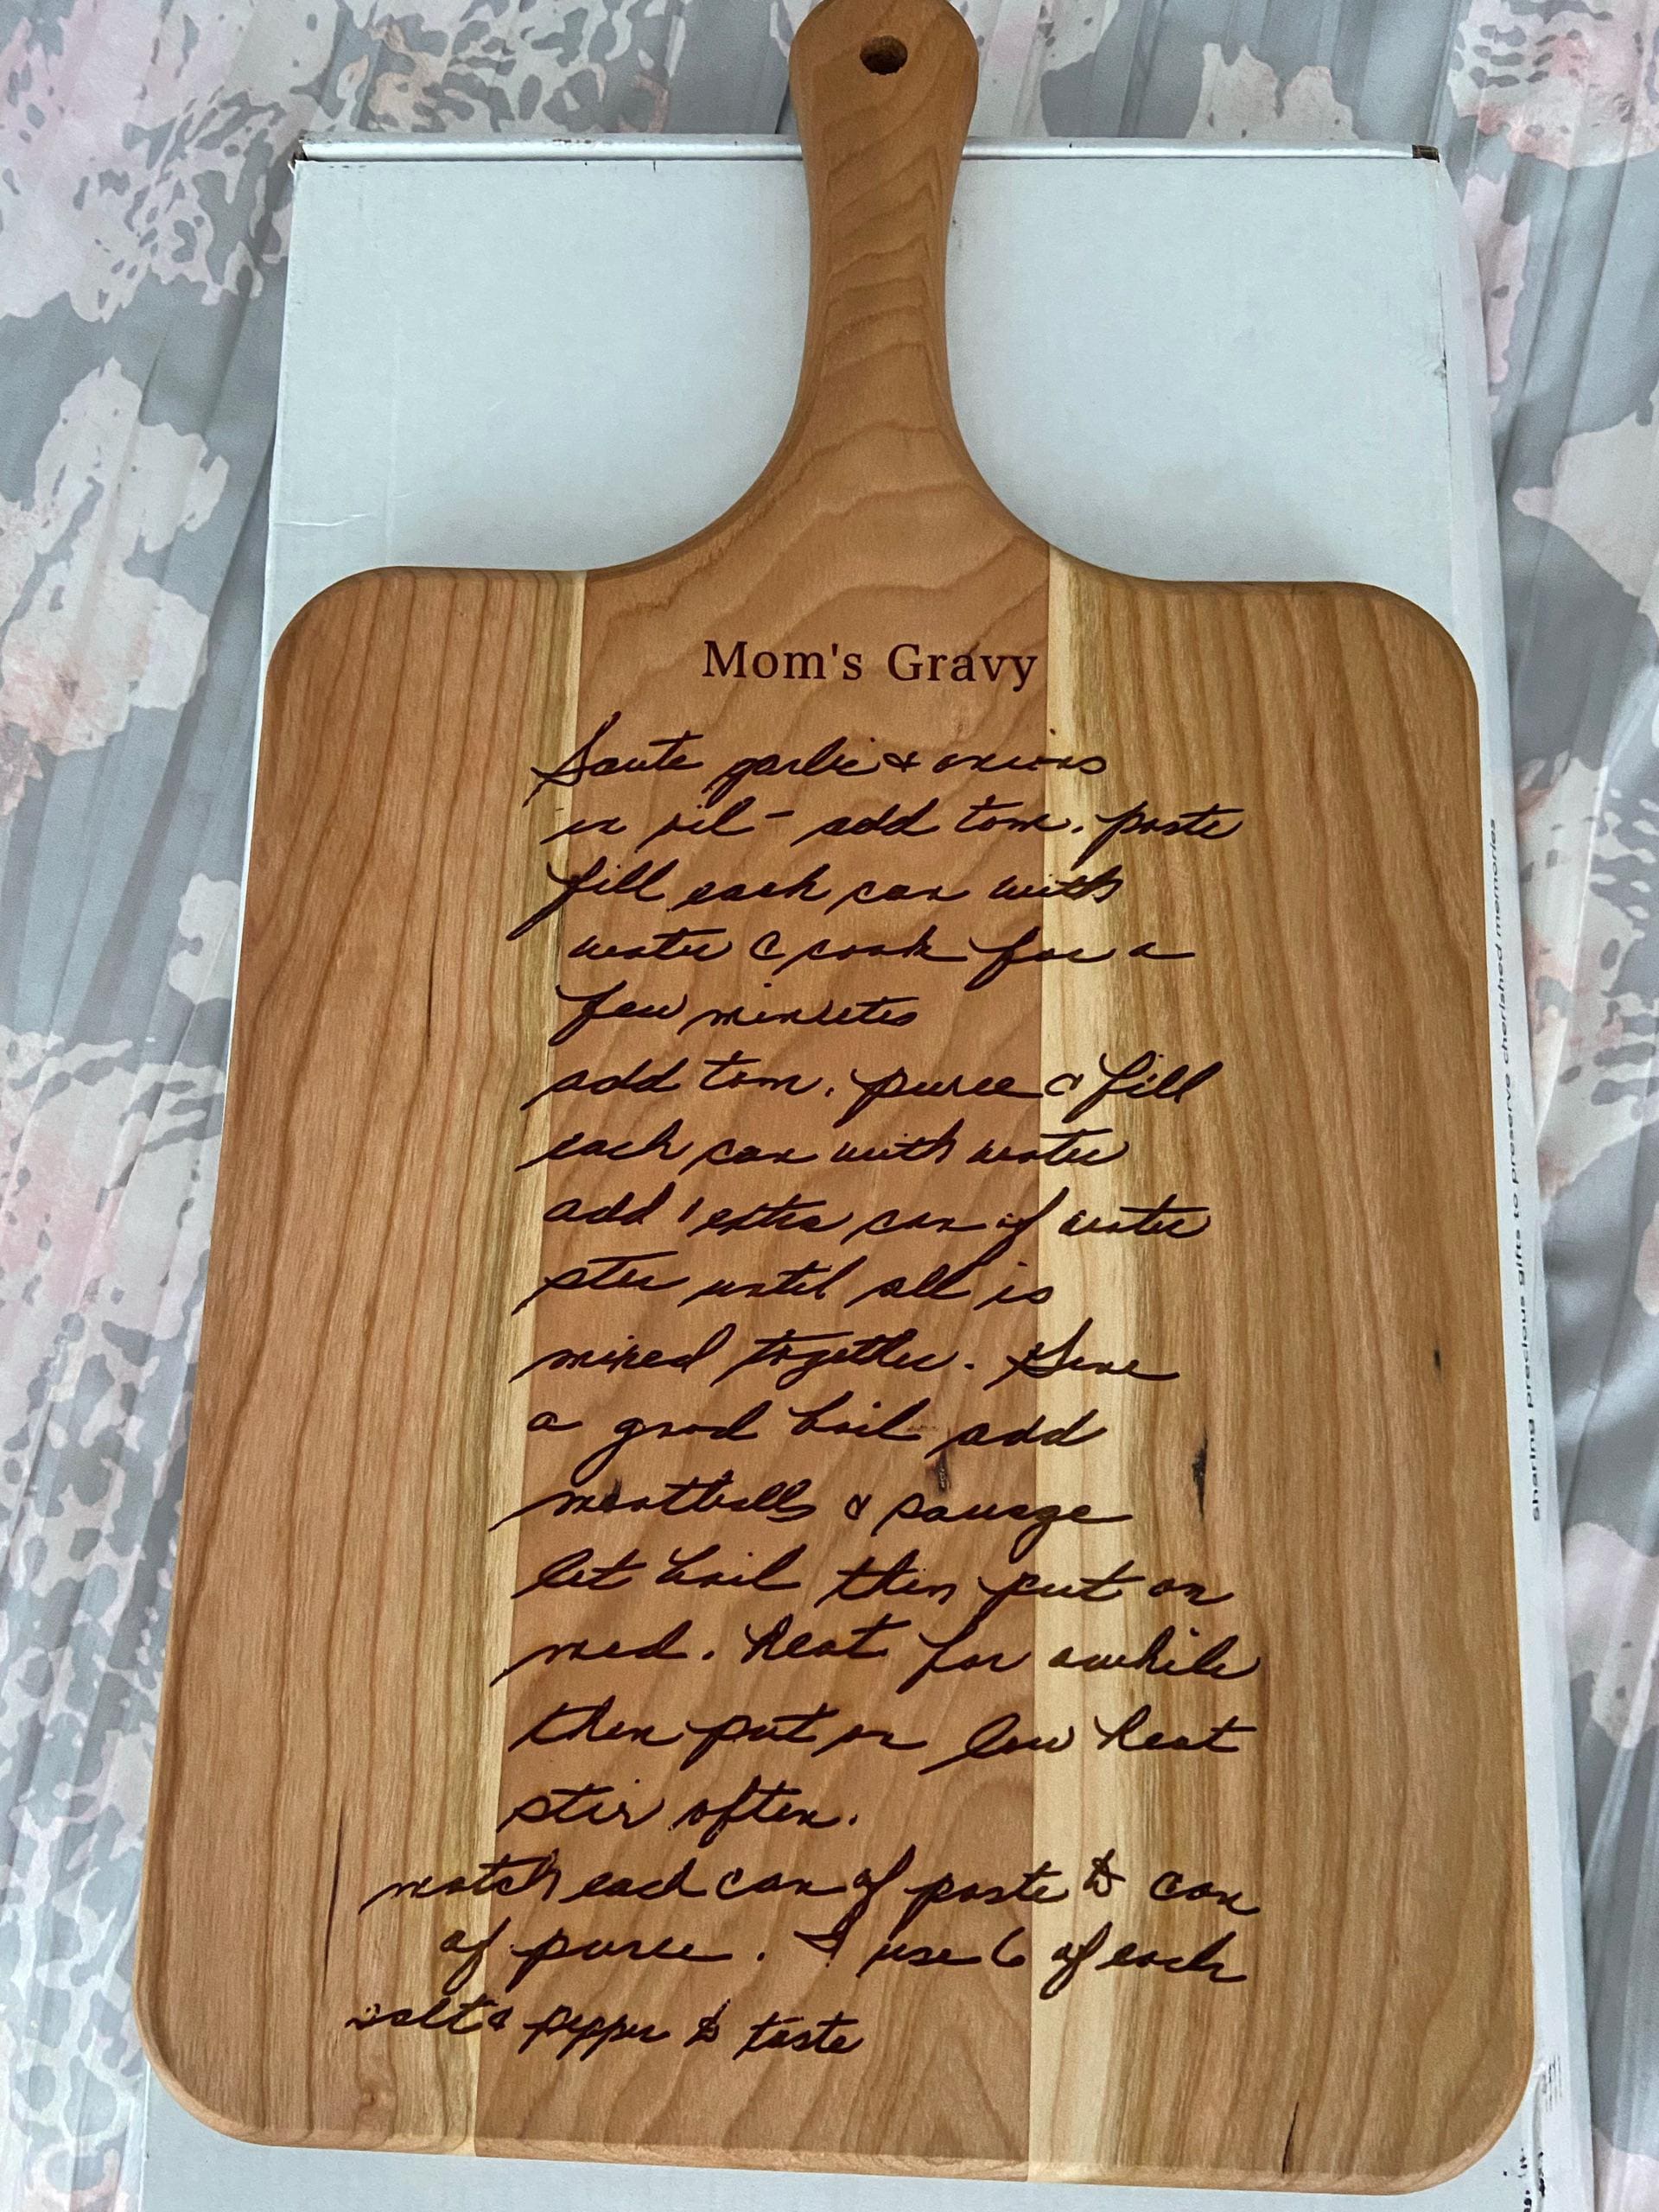 Mom's Gravy
Saute garlic & onions
in oil - add tom. paste
fill each can with
water & cook for a
few minutes
add tom. puree & fill
each can with water
add 1 extra can of water
stir until all is
mixed together. Give
a good boil add
meatballs & sausage
let boil then put on
med. heat for awhile
then put on low heat
stir often.
match each can of paste to can
of puree. I use 6 of each
salt & pepper to taste
sharing precious gifts to preserve cherished memories